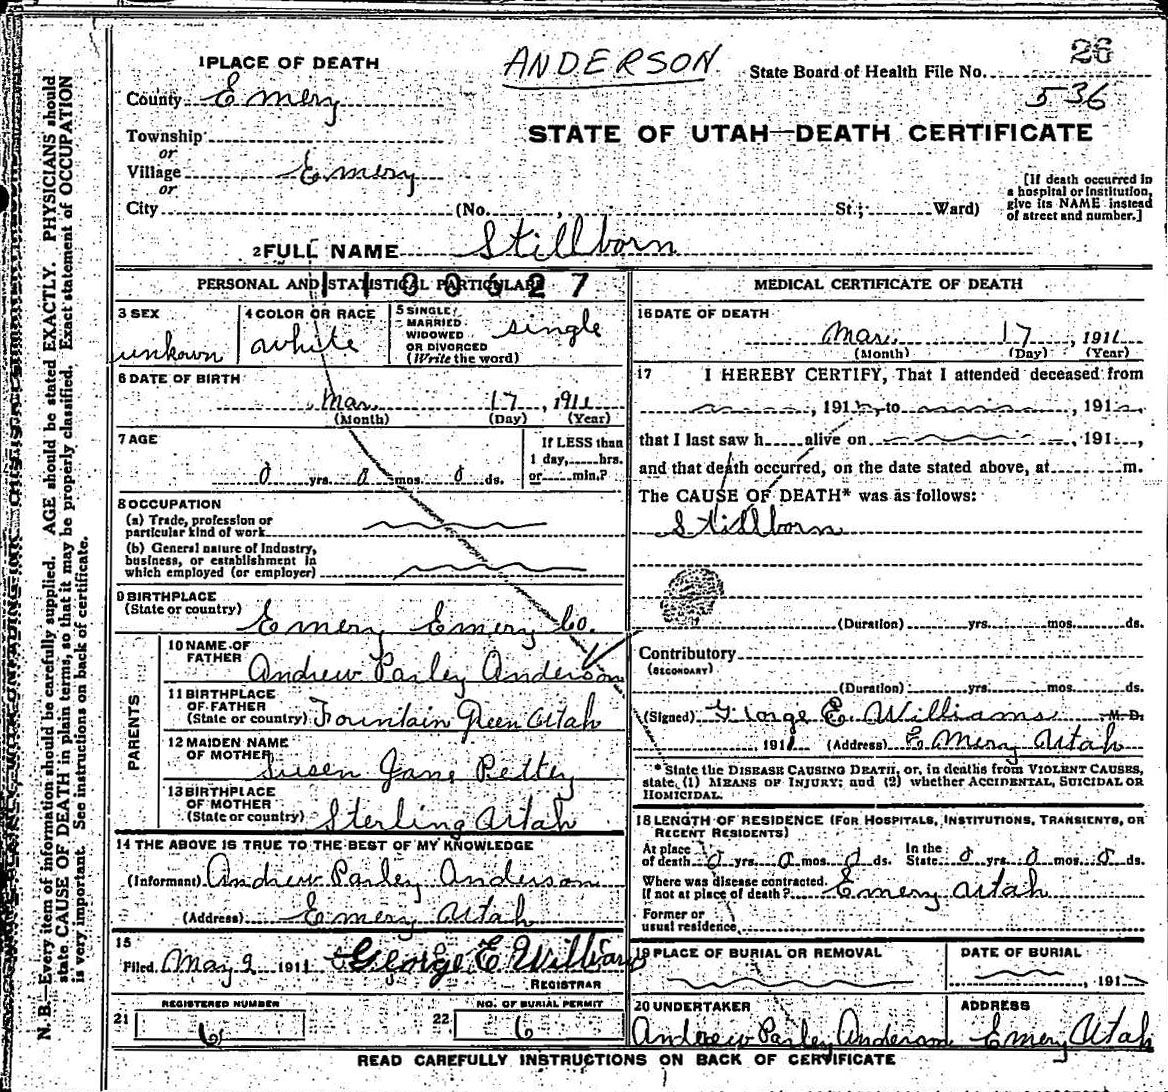 ANDERSON
26
536
1 PLACE OF DEATH
State Board of Health File No.
County Emery
STATE OF UTAH—DEATH CERTIFICATE
Township
or
Village Emery
or
City (No. , St.; Ward)
[If death occurred in
a hospital or institution,
give its NAME instead
of street and number.]
2 FULL NAME Stillborn
1100627
PERSONAL AND STATISTICAL PARTICULARS
3 SEX
unkown
4 COLOR OR RACE
white
5 SINGLE,
MARRIED,
WIDOWED
OR DIVORCED
(Write the word)
single
6 DATE OF BIRTH
Mar. 17, 1911
(Month) (Day) (Year)
7 AGE
0 yrs. 0 mos. 0 ds.
If LESS than
1 day, hrs.
or min.?
8 OCCUPATION
(a) Trade, profession or
particular kind of work
(b) General nature of Industry,
business, or establishment in
which employed (or employer)
9 BIRTHPLACE
(State or country)
Emery Emery Co.
PARENTS
10 NAME OF
FATHER
Andrew Parley Anderson
11 BIRTHPLACE
OF FATHER
(State or country) Fountain Green Utah
12 MAIDEN NAME
OF MOTHER
Susen Jane Pettey
13 BIRTHPLACE
OF MOTHER
(State or country) Sterling Utah
14 THE ABOVE IS TRUE TO THE BEST OF MY KNOWLEDGE
(Informant) Andrew Parley Anderson
(Address) Emery Utah
15
Filed May 2 1911 George E Williams
REGISTRAR
REGISTERED NUMBER
21 6
NO. OF BURIAL PERMIT
22 6
MEDICAL CERTIFICATE OF DEATH
16 DATE OF DEATH
Mar. 17, 1911
(Month) (Day) (Year)
17 I HEREBY CERTIFY, That I attended deceased from
, 191 , to , 191
that I last saw h alive on , 191 ,
and that death occurred, on the date stated above, at m.
The CAUSE OF DEATH* was as follows:
Stillborn
(Duration) yrs. mos. ds.
Contributory
(SECONDARY)
(Duration) yrs. mos. ds.
(Signed) George E. Williams M. D.
1911 (Address) Emery Utah
*State the DISEASE CAUSING DEATH, or, in deaths from VIOLENT CAUSES,
state, (1) MEANS OF INJURY; and (2) whether ACCIDENTAL, SUICIDAL OR
HOMICIDAL.
18 LENGTH OF RESIDENCE (FOR HOSPITALS, INSTITUTIONS, TRANSIENTS, OR
RECENT RESIDENTS)
At place
of death 0 yrs. 0 mos. 0 ds.
In the
State 0 yrs. 0 mos. 0 ds.
Where was disease contracted,
If not at place of death? Emery Utah
Former or
usual residence
19 PLACE OF BURIAL OR REMOVAL
DATE OF BURIAL
, 191
20 UNDERTAKER
Andrew Parley Anderson
ADDRESS
Emery Utah
READ CAREFULLY INSTRUCTIONS ON BACK OF CERTIFICATE
N. B.—Every item of information should be carefully supplied. AGE should be stated EXACTLY. PHYSICIANS should
state CAUSE OF DEATH in plain terms, so that it may be properly classified. Exact statement of OCCUPATION
is very important. See instructions on back of certificate.